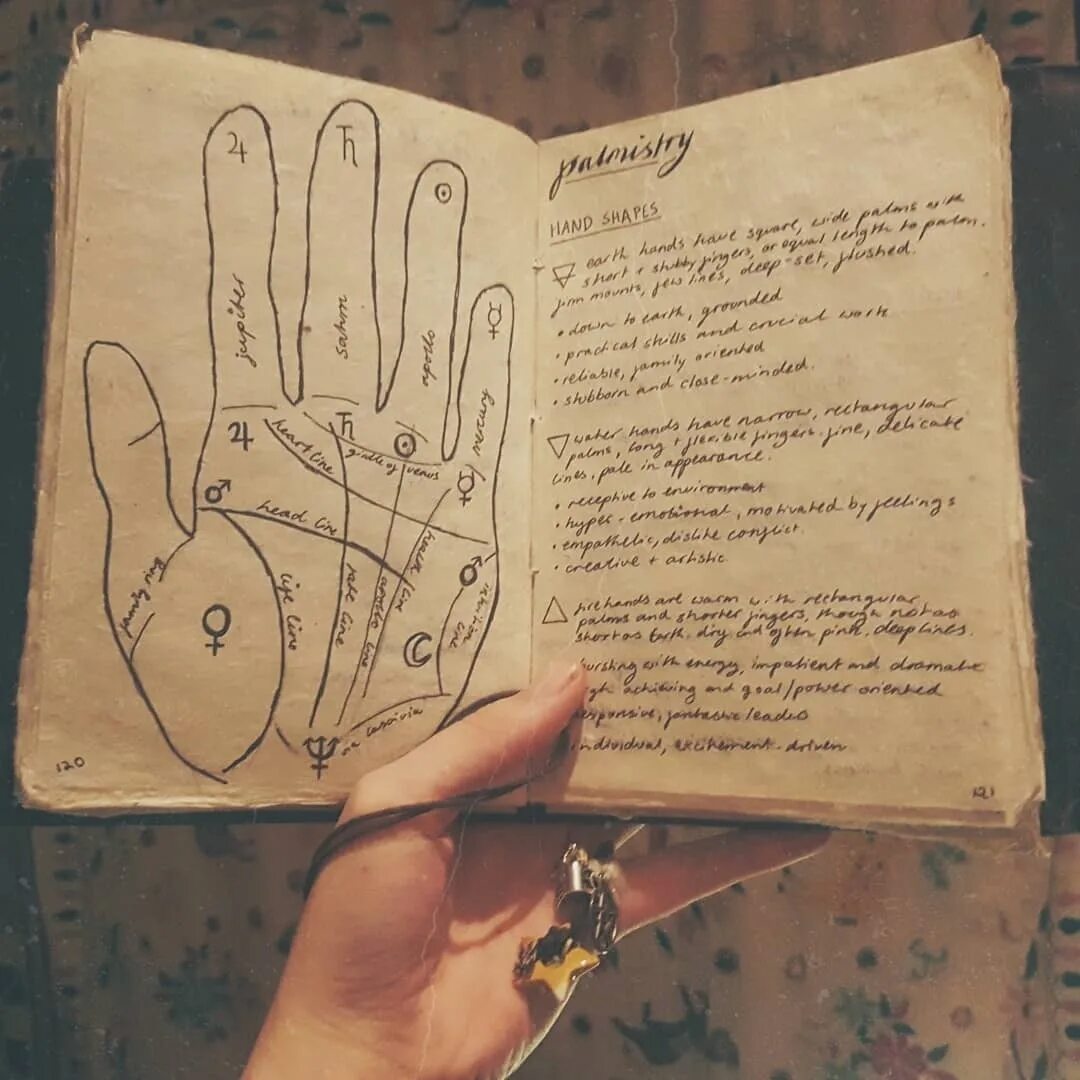 ♃
♄
☉
☿
jupiter
saturn
apollo
mercury
♃
♄
☉
☿
heart line
girdle of venus
♂
head line
health line
♂
family ring
life line
fate line
apollo line
intuition line
♀
☾
via lascivia
♆
120
palmistry
HAND SHAPES
earth hands have square, wide palms with
short + stubby fingers, or equal length to palm.
firm mounts, few lines, deep-set, flushed.
• down to earth, grounded
• practical skills and crucial work
• reliable, family oriented
• stubborn and close-minded.
water hands have narrow, rectangular
palms, long + flexible fingers. fine, delicate
lines, pale in appearance.
• receptive to environment
• hyper-emotional, motivated by feelings
• empathetic, dislike conflict.
• creative + artistic
fire hands are warm with rectangular
palms and shorter fingers, though not as
short as Earth. dry and often pink, deep lines.
bursting with energy, impatient and dramatic
achieving and goal/power oriented
responsive, fantastic leaders
individual, excitement-driven
121